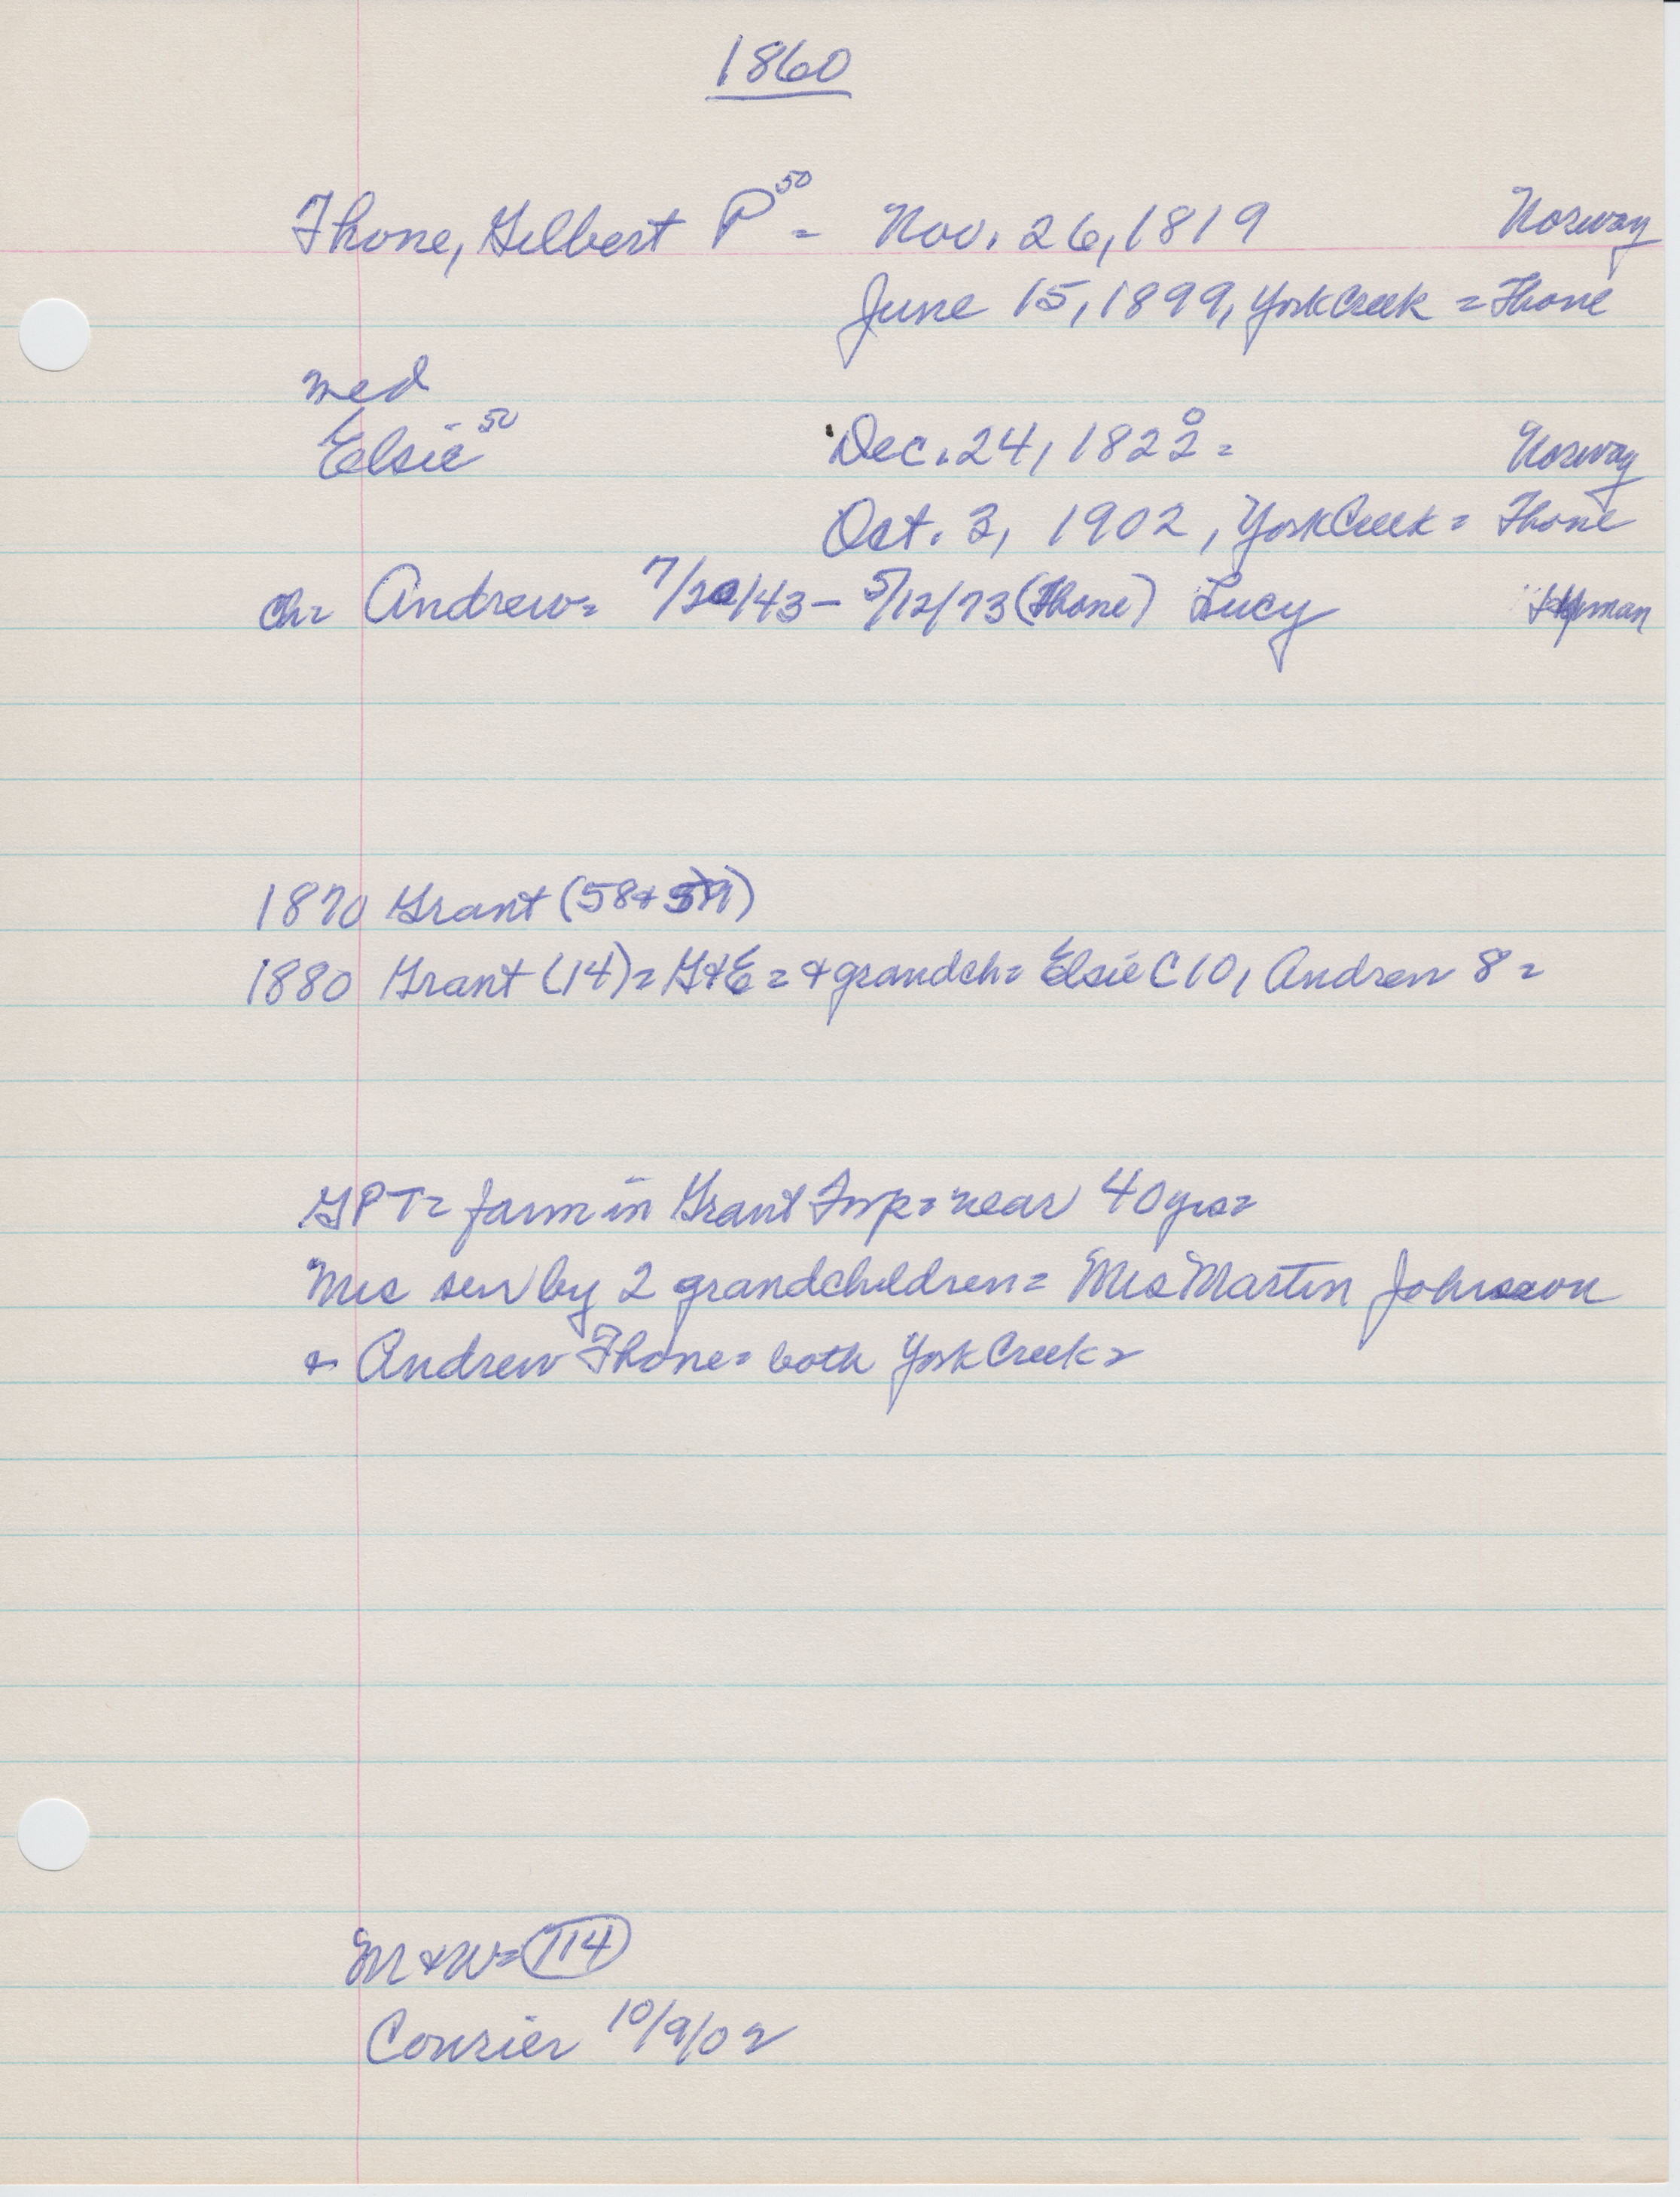 1860
Thone, Gilbert P⁵⁰ = Nov. 26, 1819 Norway
June 15, 1899, York Creek = Thone
med
Elsie⁵⁰ Dec. 24, 1822⁰ = Norway
Oct. 3, 1902, York Creek = Thone
ch= Andrew= 7/20/43 – 5/12/73 (Thone) Lucy
1870 Grant (58+59)
1880 Grant (14) = G+E = + grandch= Elsie C 10, Andrew 8 =
GPT= farm in Grant Twp= near 40 yrs=
Mrs sur by 2 grandchildren= Mrs Martin Johnson
+ Andrew Thone= both York Creek=
M+W= 114
Courier 10/9/02